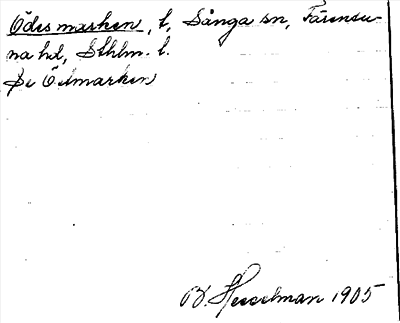 Ödesmarken, l, Sånga sn, Färentu-
na hd, Sthlm. l.
Se Ödmarken
B. Hesselman 1905